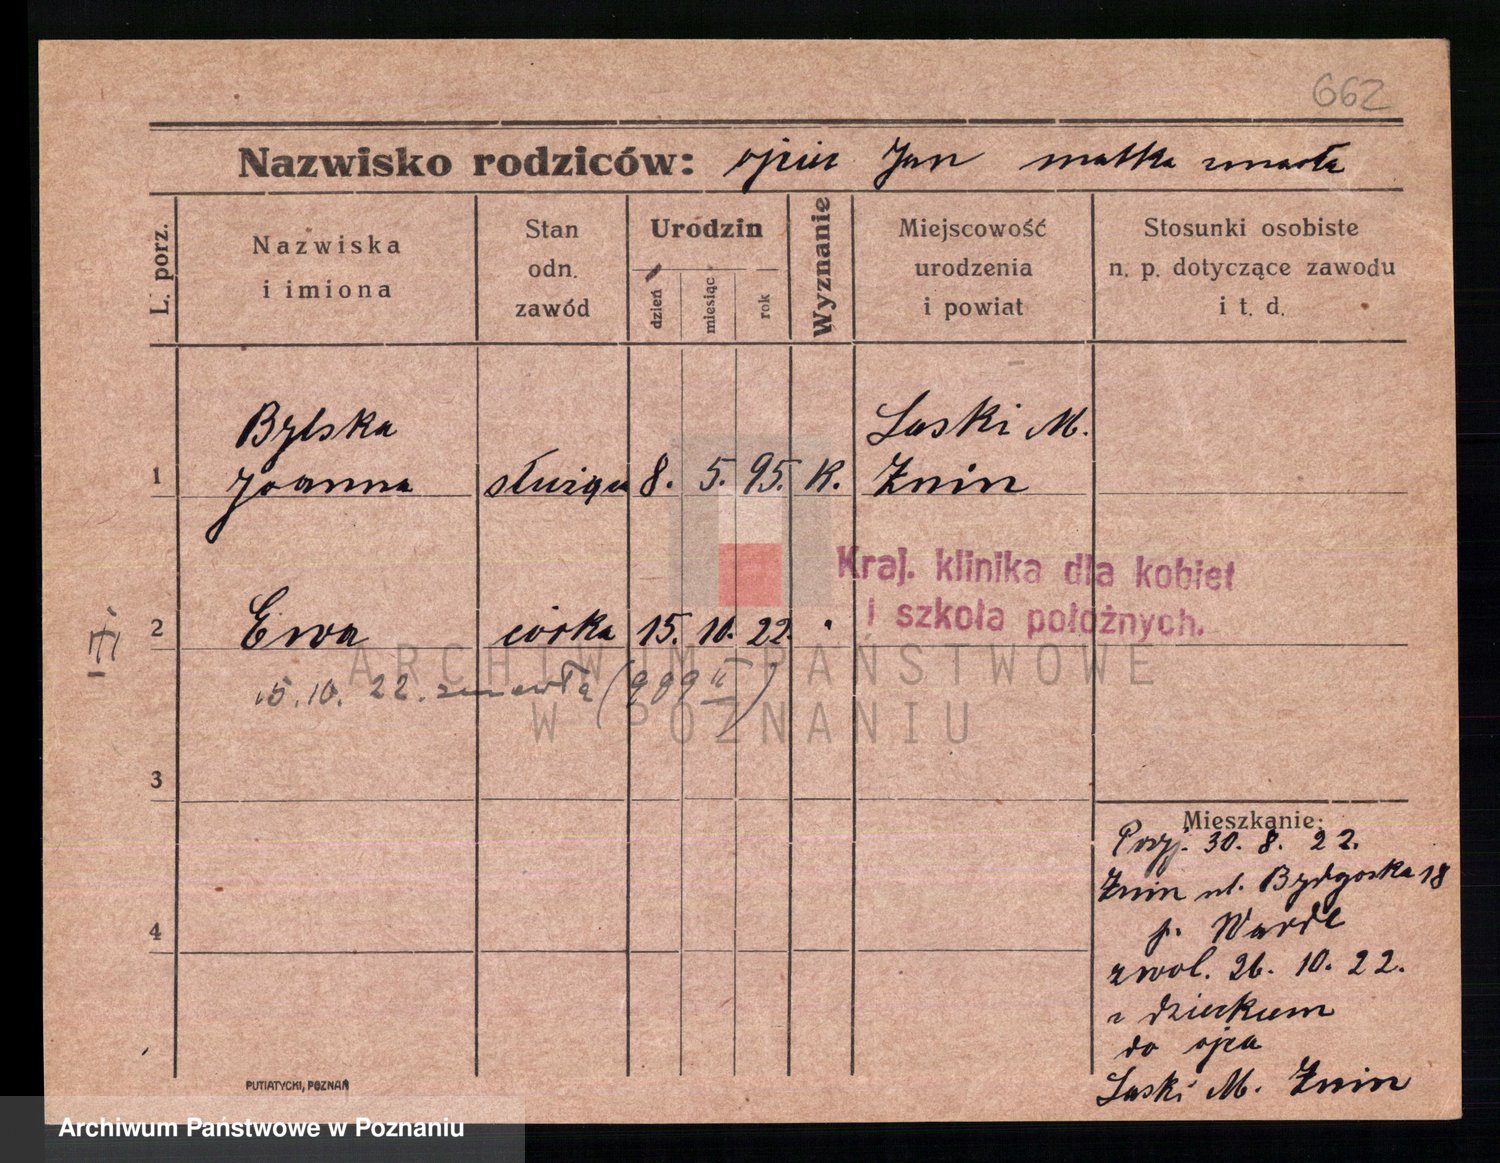 662
Nazwisko rodziców: ojciec Jan matka zmarła
L. porz.
Nazwiska
i imiona
Stan
odn.
zawód
Urodzin
dzień
miesiąc
rok
Wyznanie
Miejscowość
urodzenia
i powiat
Stosunki osobiste
n. p. dotyczące zawodu
i t. d.
Bylska
Laski M.
1 Joanna służąca 8. 5. 95. K. Żnin
Kraj. klinika dla kobiet
i szkoła położnych.
2 Ewa córka 15. 10. 22. "
III
15. 10. 22. zmarła (989 II)
ARCHIWUM PAŃSTWOWE
W POZNANIU
3
Mieszkanie:
Przj. 30. 8. 22.
Żnin ul. Bydgoska 18
p. Warde
4
zwol. 26. 10. 22.
z dzieckiem
do ojca
Laski M. Żnin
PUTIATYCKI, POZNAŃ
Archiwum Państwowe w Poznaniu